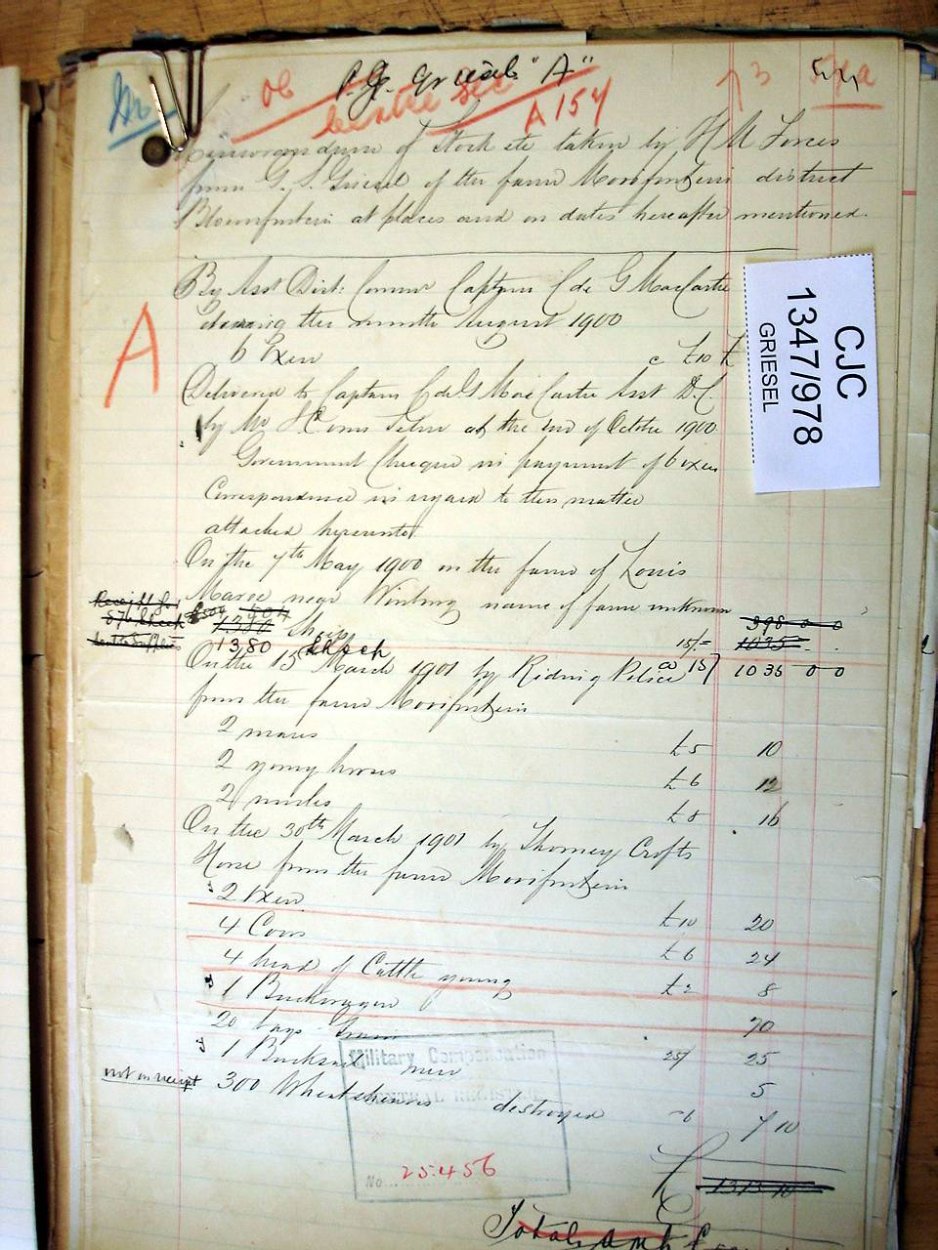 "A"
A 154
Memorandum of Stock etc taken by H M Forces
from G. S. Griesel of the farm Mooifontein district
Bloemfontein at places and on dates hereafter mentioned.
CJC
1347/978
GRIESEL
A
By Asst Dist: Commr Captain C de G MacCartie
during the month August 1900
6 Oxen £10
Delivered to Captain C de G MacCartie Asst D.C.
by Mr at the end of Octbre 1900
Government Cheque in payment of 6 oxen
Correspondence in regard to this matter
attached hereunto
On the 7th May 1900 on the farm of Louis
Maree near Winburg name of farm unknown
Receipt for
Sheep 15/= 1035
1380 Sheep
a 15/ 1035 0 0
On the 15 March 1901 by Riding Police
from the farm Mooifontein
2 mares £5 10
2 young horses £6 12
2 mules £8 16
On the 30th March 1901 by Thorney Crofts
Horse from the farm Mooifontein
2 Oxen £10 20
4 Cows £6 24
4 head of Cattle young £2 8
1 Buckwaggon 70
20 bags 25/ 25
1 Bucksail new 5
not on receipt 300 Wheatsheaves destroyed -6 7 10
£ 1313 10
Military Compensation
CENTRAL REGISTRY
No. 25456
Total amt £